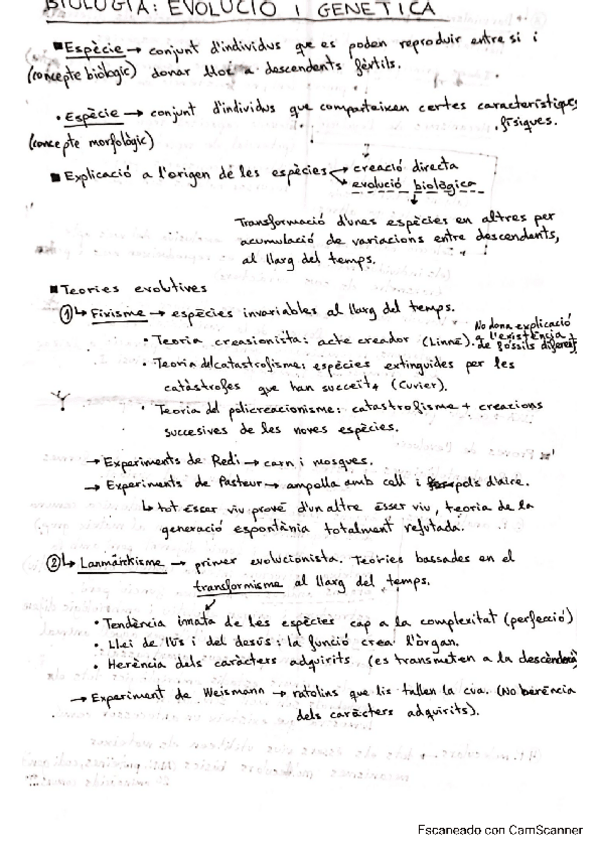 BIOLOGIA: EVOLUCIÓ I GENÈTICA
■ Espècie → conjunt d'individus que es poden reproduir entre si i
(concepte biològic) donar lloc a descendents fèrtils.
• Espècie → conjunt d'individus que comparteixen certes característiques
físiques.
(concepte morfològic)
■ Explicació a l'origen de les espècies → creació directa
→ evolució biològica
Transformació d'unes espècies en altres per
acumulació de variacions entre descendents,
al llarg del temps.
■ Teories evolutives
① ↳ Fixisme → espècies invariables al llarg del temps.
No dona explicació
• Teoria creasionista: acte creador (Linné). a l'existència
de fòssils diferents
• Teoria del catastrofisme: espècies extinguides per les
catàstrofes que han succeit (Cuvier).
• Teoria del policreacionisme: catastrofisme + creacions
succesives de les noves espècies.
→ Experiments de Redi → carn i mosques.
→ Experiments de Pasteur → ampolla amb coll i pols d'aire.
↳ tot ésser viu prové d'un altre ésser viu, teoria de la
generació espontània totalment refutada.
② ↳ Lanmarkisme → primer evolucionista. Teories bassades en el
transformisme al llarg del temps.
• Tendència innata de les espècies cap a la complexitat (perfecció)
• Llei de l'ús i del desús: la funció crea l'òrgan.
• Herència dels caràcters adquirits (es transmeten a la descèndència)
→ Experiment de Weismann → ratolins que lis tallen la cua. (No herència
dels caràcters adquirits).
Escaneado con CamScanner